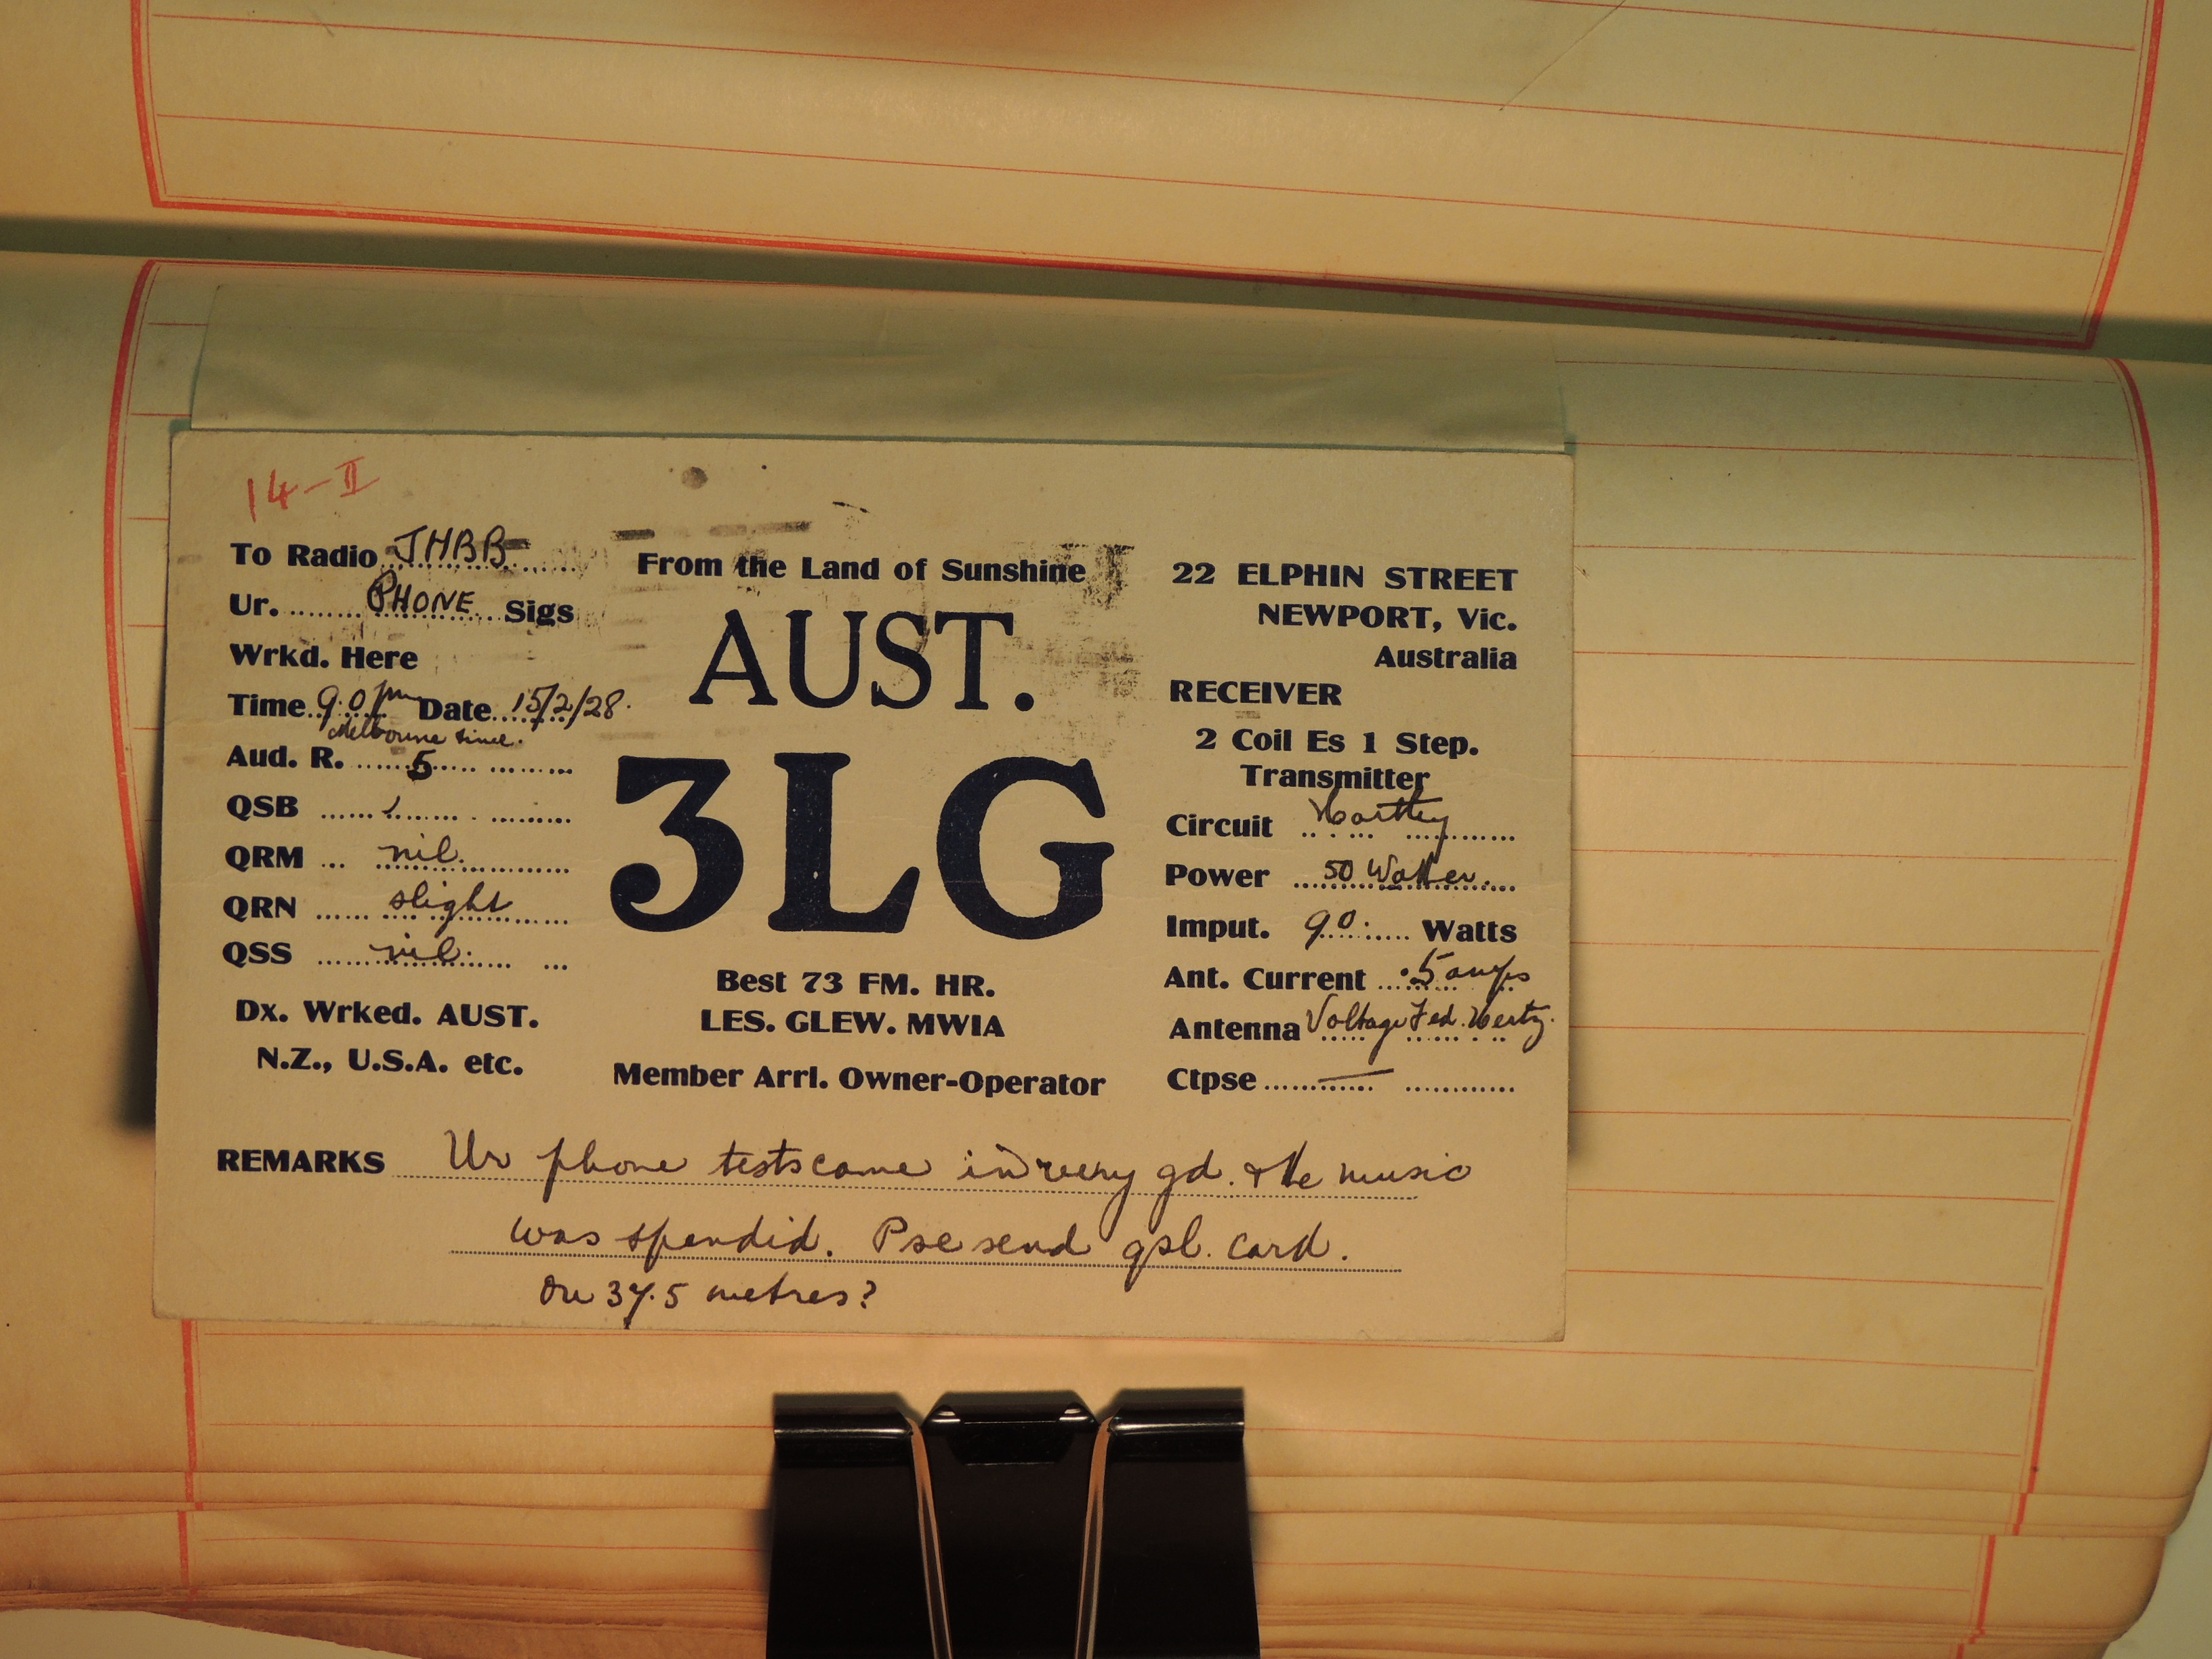 14-II
To Radio JHBB
Ur. PHONE Sigs
Wrkd. Here
Time 9.0 pm Date 15/2/28.
Melbourne time.
Aud. R. 5
QSB
QRM nil.
QRN slight
QSS nil.
Dx. Wrked. AUST.
N.Z., U.S.A. etc.
From the Land of Sunshine
AUST.
3LG
Best 73 FM. HR.
LES. GLEW. MWIA
Member Arrl. Owner-Operator
22 ELPHIN STREET
NEWPORT, Vic.
Australia
RECEIVER
2 Coil Es 1 Step.
Transmitter
Circuit Hartley
Power 50 Watter.
Imput. 90 Watts
Ant. Current .5 amps
Antenna Voltage Fed. Hertz.
Ctpse —
REMARKS Ur phone tests came in very gd. & the music
was spendid. Pse send qsl. card.
On 37.5 metres?